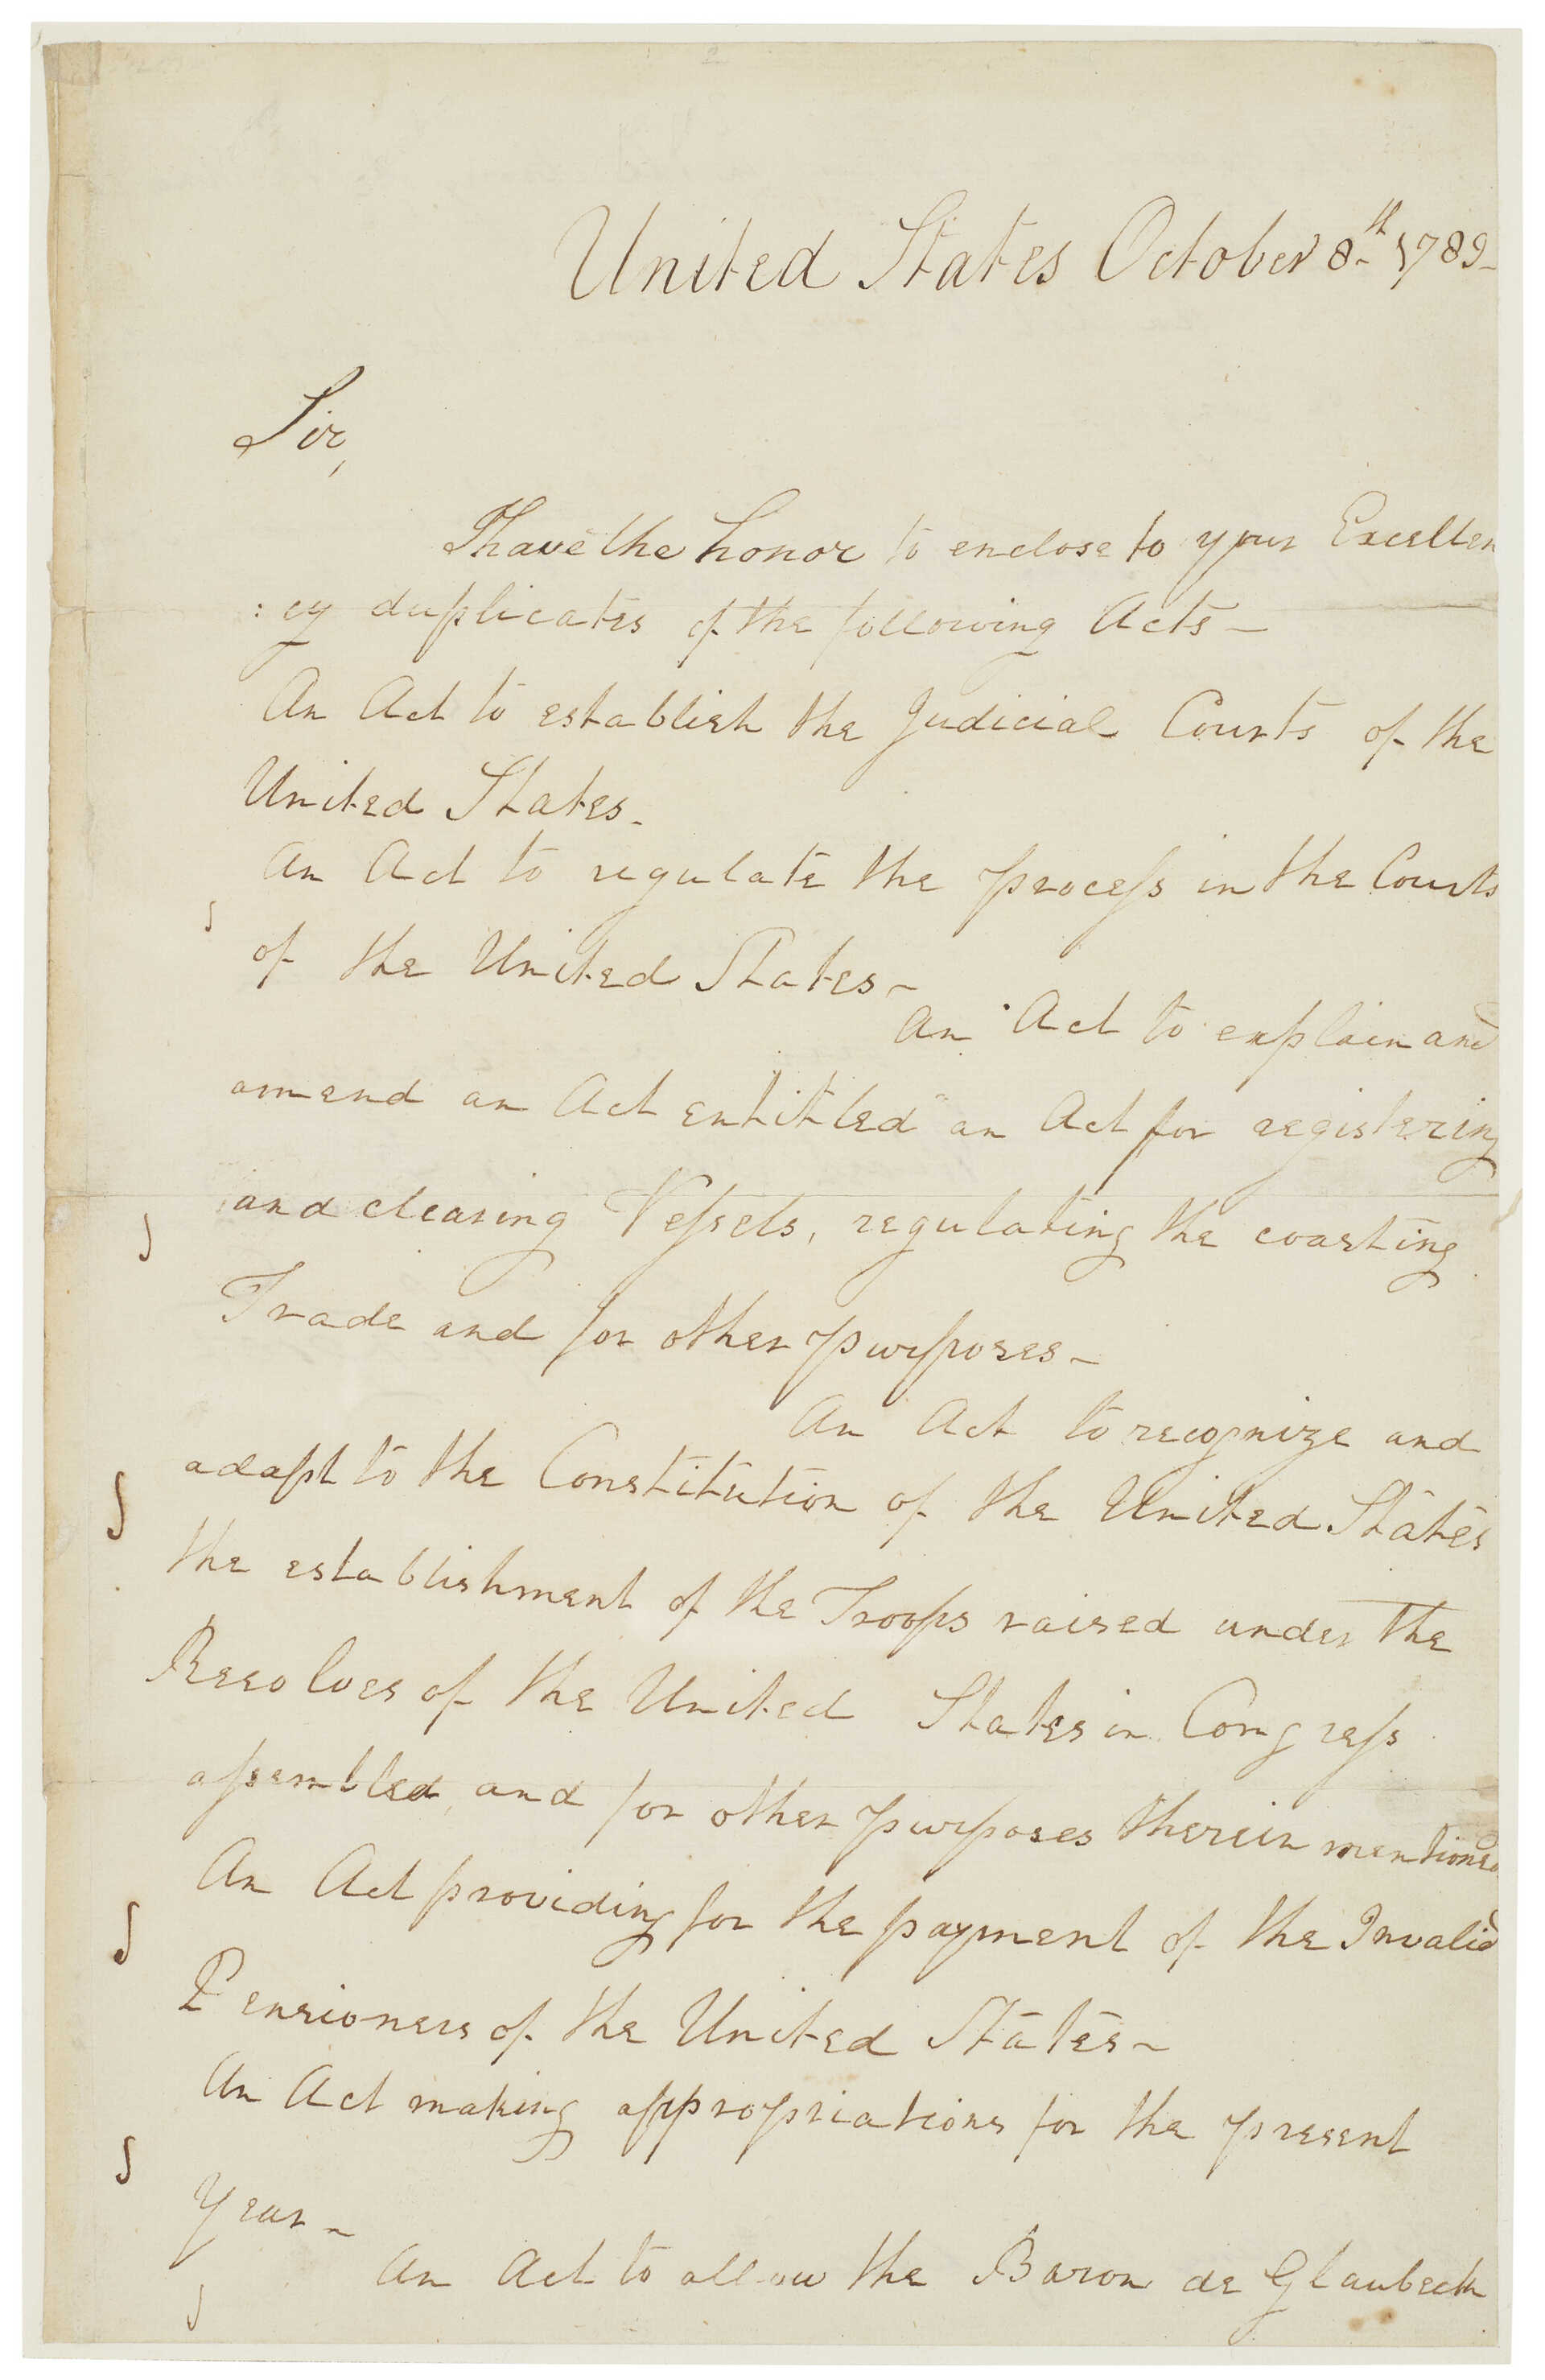 United States October 8th 1789_
Sir,
I have the honor to enclose to your Excellen
:cy duplicates of the following Acts—
An Act to establish the Judicial Courts of the
United States_
An Act to regulate the process in the Courts
of the United States~
An Act to explain and
amend an Act entitled "an Act for registering
and clearing Vessels, regulating the coasting
Trade and for other purposes~
An Act to recognize and
adapt to the Constitution of the United States
the establishment of the Troops raised under the
Resolves of the United States in Congress
assembled, and for other purposes therein mentioned
An Act providing for the payment of the Invalid
Pensioners of the United States~
An Act making appropriations for the present
Year~
An Act to allow the Baron de Glaubeck